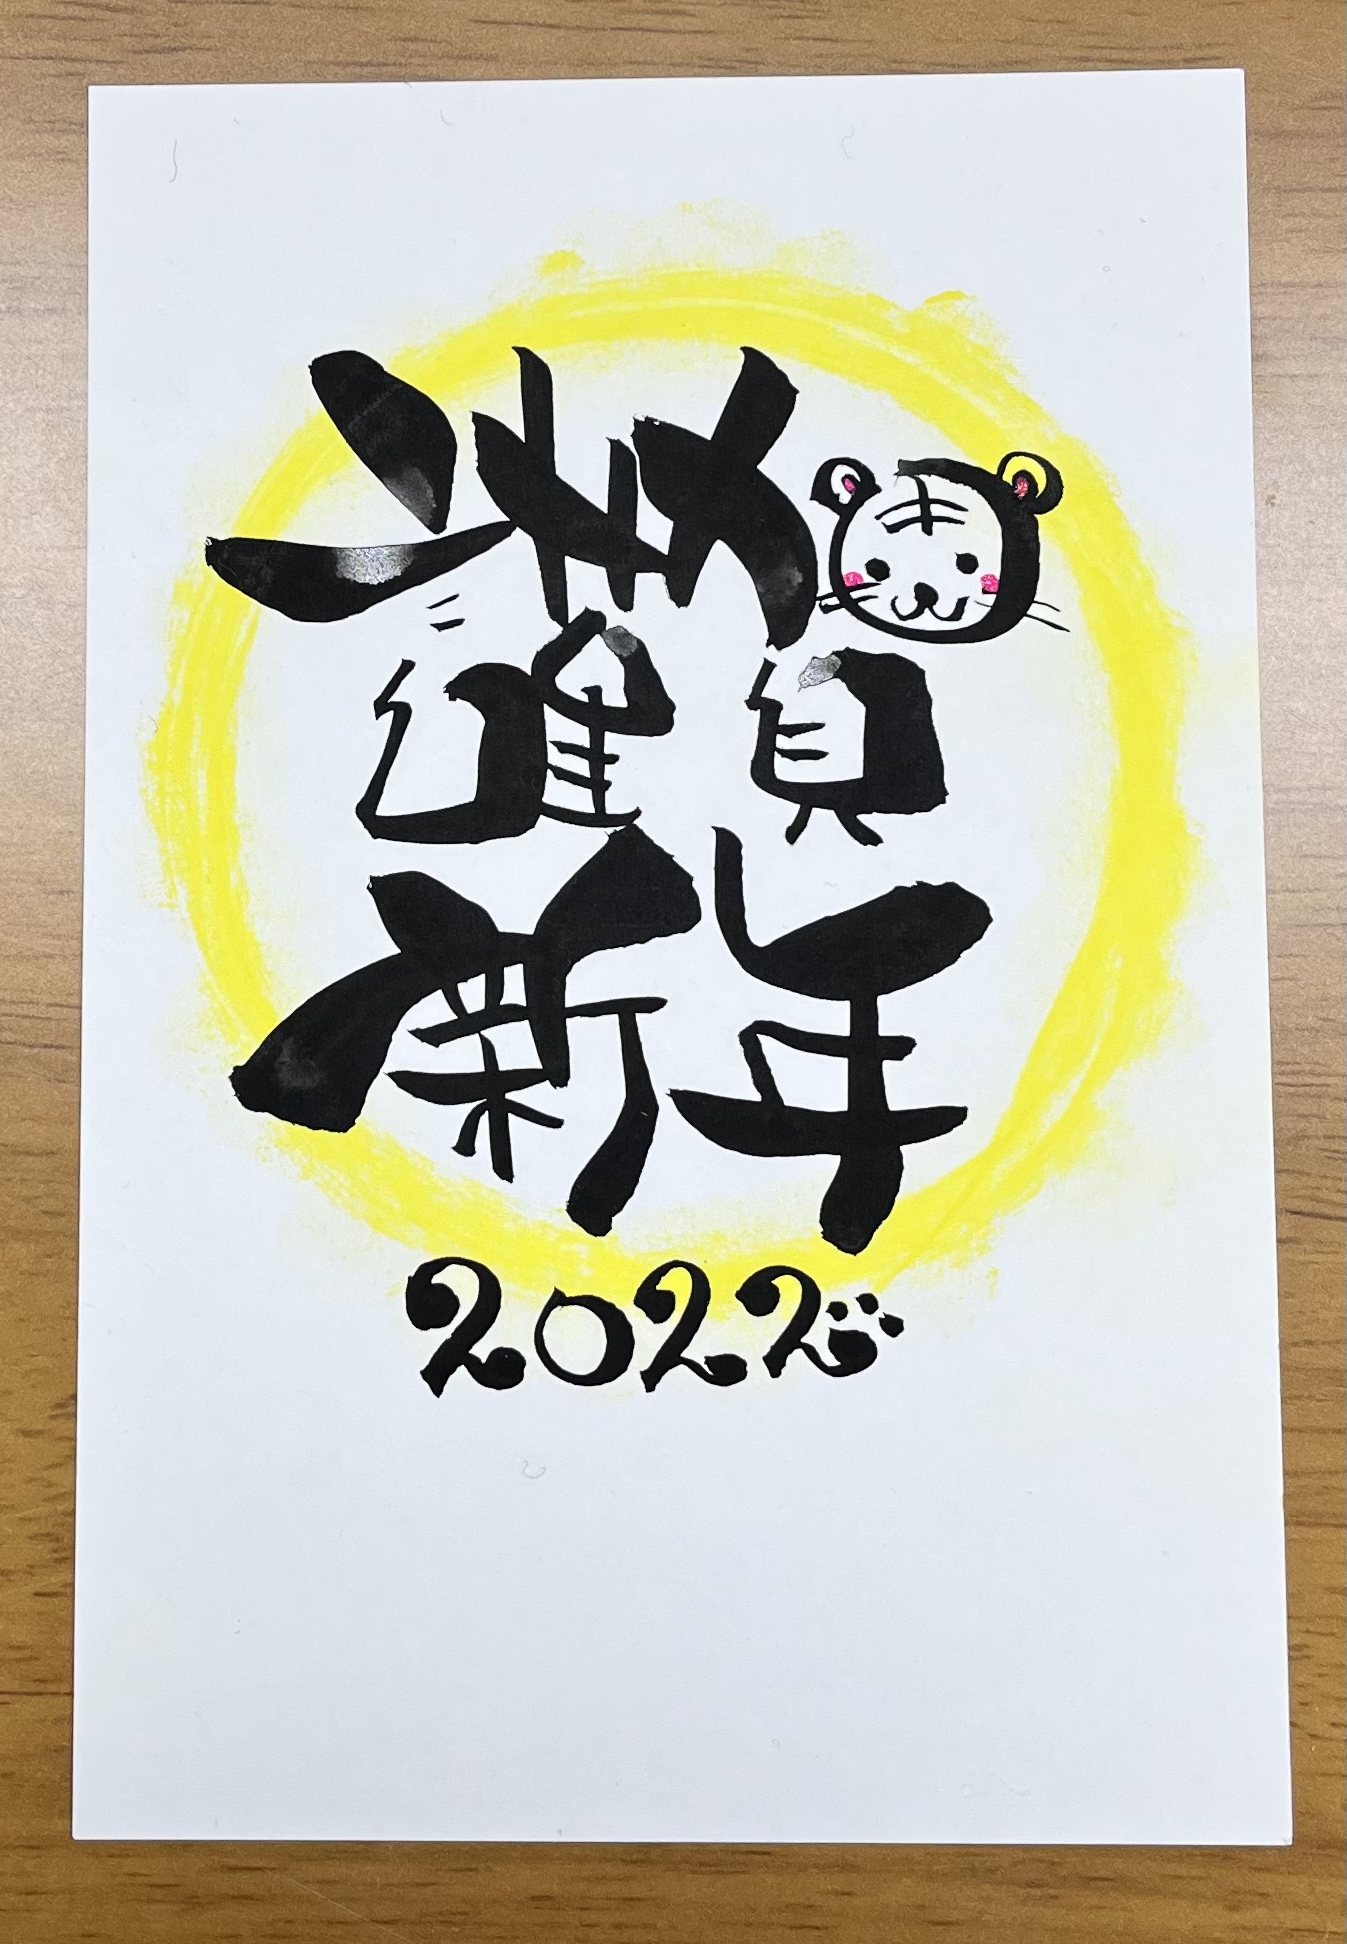 謹賀
新年
2022